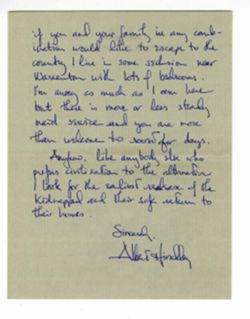 if you and your family in any comb-
ination would like to escape to the
country I live in some seclusion near
Warrenton with lots of bedrooms.
I'm away as much as I am here
but there is more or less steady
maid service and you are more
than welcome to for days.
Anyhow, like anybody else who
prefers civilization to the alternative
I look for the earliest release of the
kidnapped and their safe return to
their homes.
Sincerely,